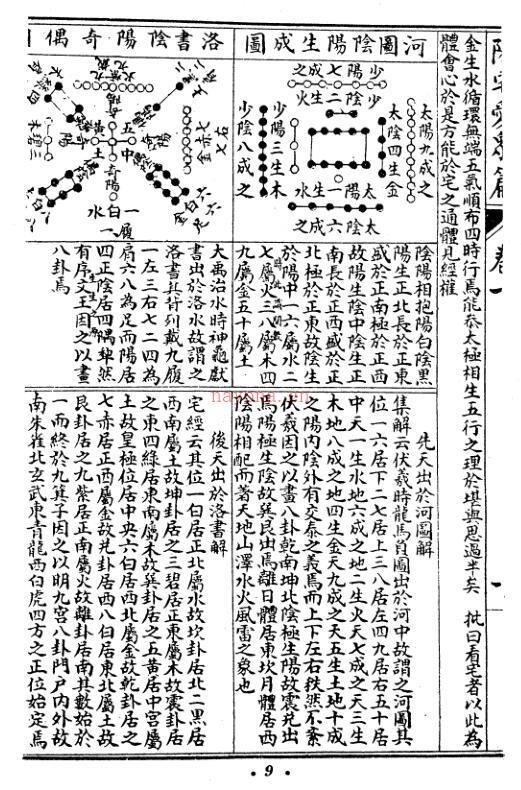 金生水循環無端五氣順布四時行焉能參太極相生五行之理於堪輿思過半矣 批曰看宅者以此為
體會心於是方能於宅之通體見經權
河圖陰陽生成圖
少陽七成之
少陰二生火
太陽九成之
太陰四生金
少陽三生木
少陰八成之
太陽一生水
太陰六成之
陰陽相抱陽白陰黑
陽生正北長於正東
盛於正南極於正西
故陽生陰中陰生正
南長於正西盛於正
北極於正東故陰生
於陽中一六屬水二
七屬火三八屬木四
九屬金五十屬土
先天出於河圖解
集解云伏羲時龍馬負圖出於河中故謂之河圖其
位一六居下二七居上三八居左四九居右五十居
中天一生水地六成之地二生火天七成之天三生
木地八成之地四生金天九成之天五生土地十成
之陽內陰外有交泰之義焉而上下左右秩然不紊
伏羲因之以畫八卦乾南坤北陰極生陽故震兌出
焉陽極生陰故巽艮出焉離日體居東坎月體居西
陰陽相配而著天地山澤水火風雷之象也
洛書陰陽奇偶圖
九紫火
七赤金
左三
右七
中五黃土
奇陽
履一白水
大禹治水時神龜獻
書出於洛水故謂之
洛書其背列戴九履
一左三右七二四為
肩六八為足而陽居
四正陰居四隅犂然
有序文王因之以畫
八卦焉
後天出於洛書解
宅經云其位一白居正北屬水故坎卦居北二黑居
西南屬土故坤卦居之三碧居正東屬木故震卦居
之東四綠居東南屬木故巽卦居之五黃居中宮屬
土故皇極位居中央六白居西北屬金故乾卦居之
七赤居正西屬金故兌卦居西八白居東北屬土故
艮卦居之九紫居正南屬火故離卦居南其數始於
一而終於九箕子因之以明九宮八卦門戶內外故
南朱雀北玄武東青龍西白虎四方之正位始定焉
• 9 •